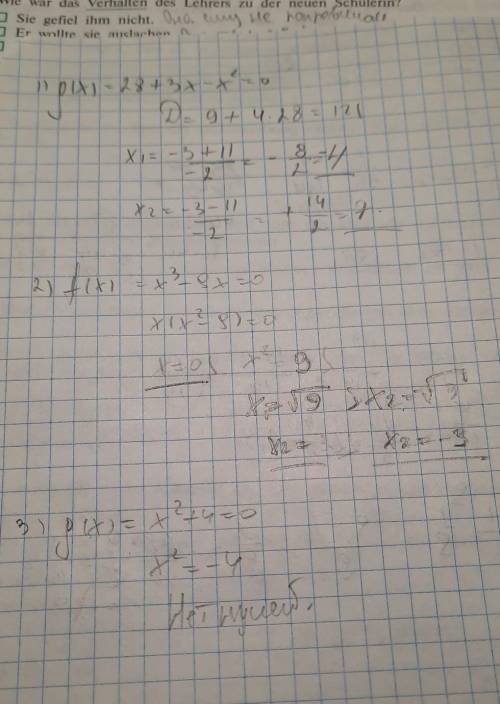 Wie war das Verhalten des Lehrers zu der neuen Schülerin?
Sie gefiel ihm nicht. Она ему не
Er wollte sie
1) g(x) = 28 + 3x - x² = 0
D = 9 + 4 · 28 = 121
x1 = (-3 + 11)/(-2) = - 8/2 = -4
x2 = (-3 - 11)/(-2) = + 14/2 = 7.
2) f(x) = x³ - 9x = 0
x(x² - 9) = 0
x = 0; x² = 9;
x = √9 ; x2 = -√9
x2 = x2 = -3
3) g(x) = x² + 4 = 0
x² = -4
Нет нулей.